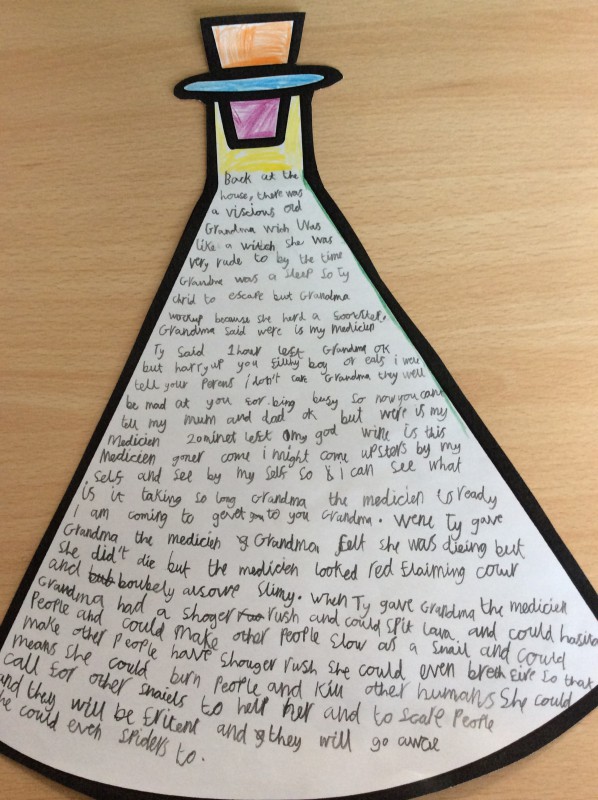 Back at the
house, there was
a viscious old
Grandma wich was
like a witch she was
very rude to by the time
Grandma was a sleep so Ty
chrid to escape but Grandma
wockup because she herd a
Grandma said were is my medicien
Ty said 1hour left Grandma ok
but harryup you filthy boy or eals i well
tell your Perens i don't care Grandma they well
be mad at you for bing busy so now you can
tell my mum and dad ok but were is my
Medicien 20minet left Omy god wire is this
Medicien goner come i might come upsters by my
self and see by my self so i can see what
is it taking so long Grandma the medicien is ready
I am coming to to you Grandma. Were Ty gave
Grandma the medicien Grandma felt she was dieing but
she didn't die but the medicien looked red flaiming coulr
and boubely alsowe Slimy. When Ty gave Grandma the medicien
Grandma had a shoger rush and could spit lava and could
People and could make other People slow as a snail and could
make other People have Shouger rush she could even breth fire so that
means she could burn People and kill other humans she could
call for other snaiels to help her and to scare People
and they will be fritent and they will go awae
he could even spiders to.